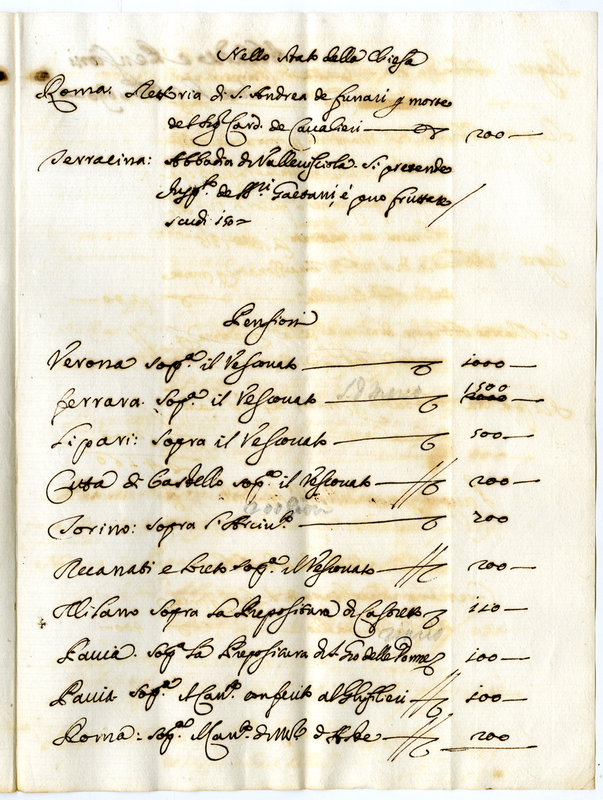 Nello Stato della Chiesa
Roma: Rettoria di S. Andrea de funari p morte
del Sigr Card. de Cavalieri 200
Terracina: Abbadia di Vallevisciola. Si pretende
de Gaetani, é puo fruttare
scudi 150
Pensioni
Verona sopa il Vescovato 1000
Ferrara. Sopa il Vescovato 1500
Lipari: sopra il Vescovato 500
Città di Castello sopa il Vescovato 200
Torino: sopra l'Arciuo 200
Recanati e Loreto Sopa il Vescovato 200
Milano sopra la Prepositura di 110
Pavia. sopa la Prepositura di S. Gio delle 100
Pavia. sopa Can. conferito al Ghislieri 100
Roma: sopa Can. di 200